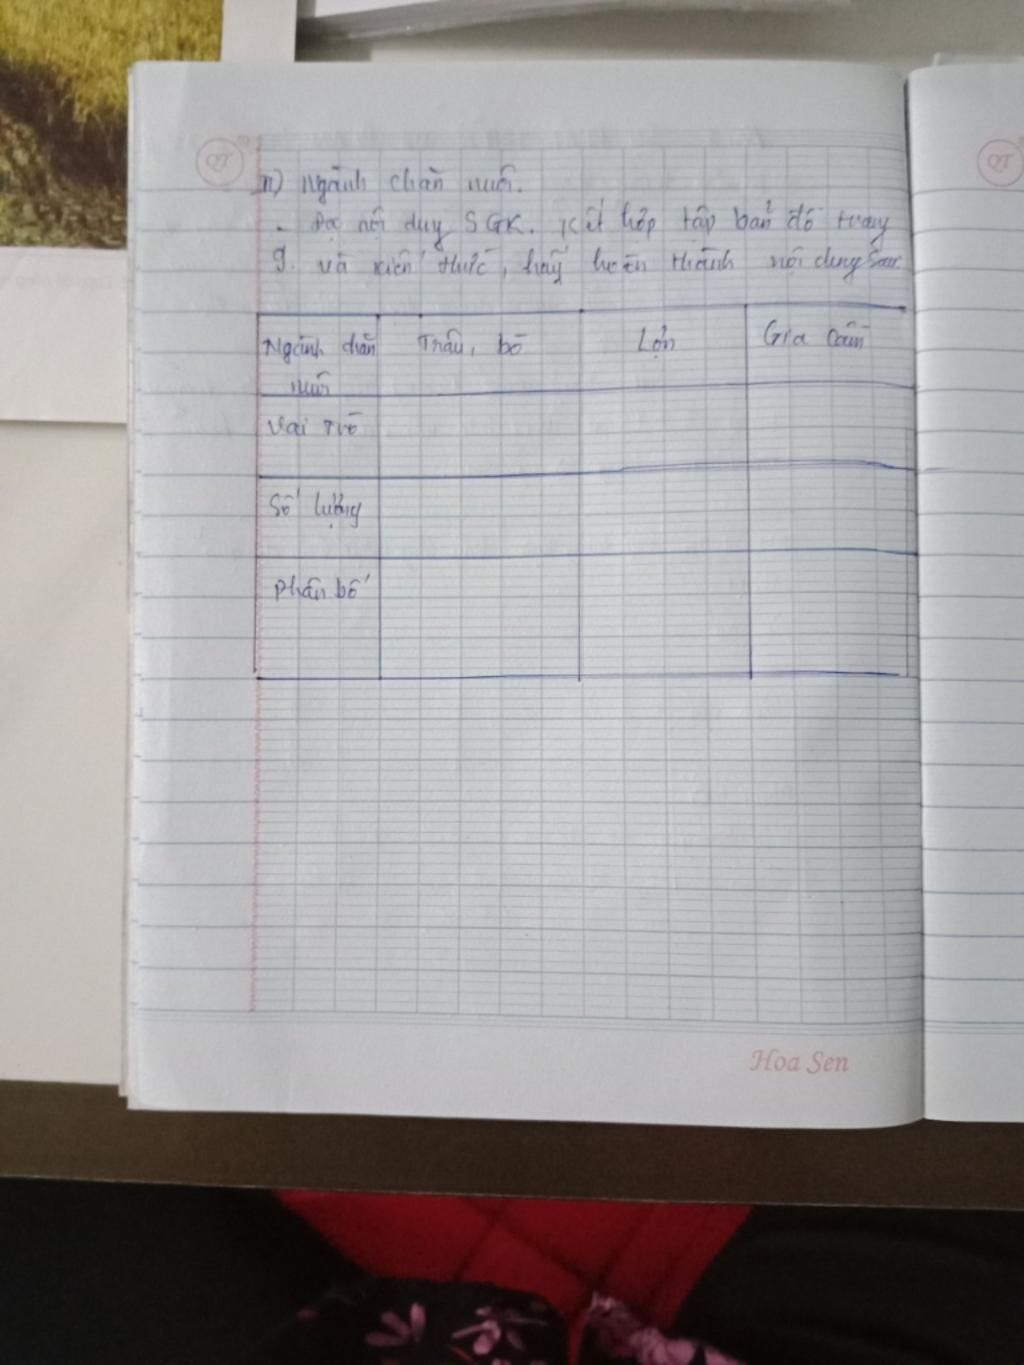 II) Ngành chăn nuôi.
- Đọc nội duy SGK. Kết hợp tập bản đồ trang
9. và kiến thức, hãy hoàn thành nội dung sau.
Ngành chăn nuôi	Trâu, bò	Lợn	Gia cầm
Vai trò
Số lượng
Phân bố
Hoa Sen
QT
QT